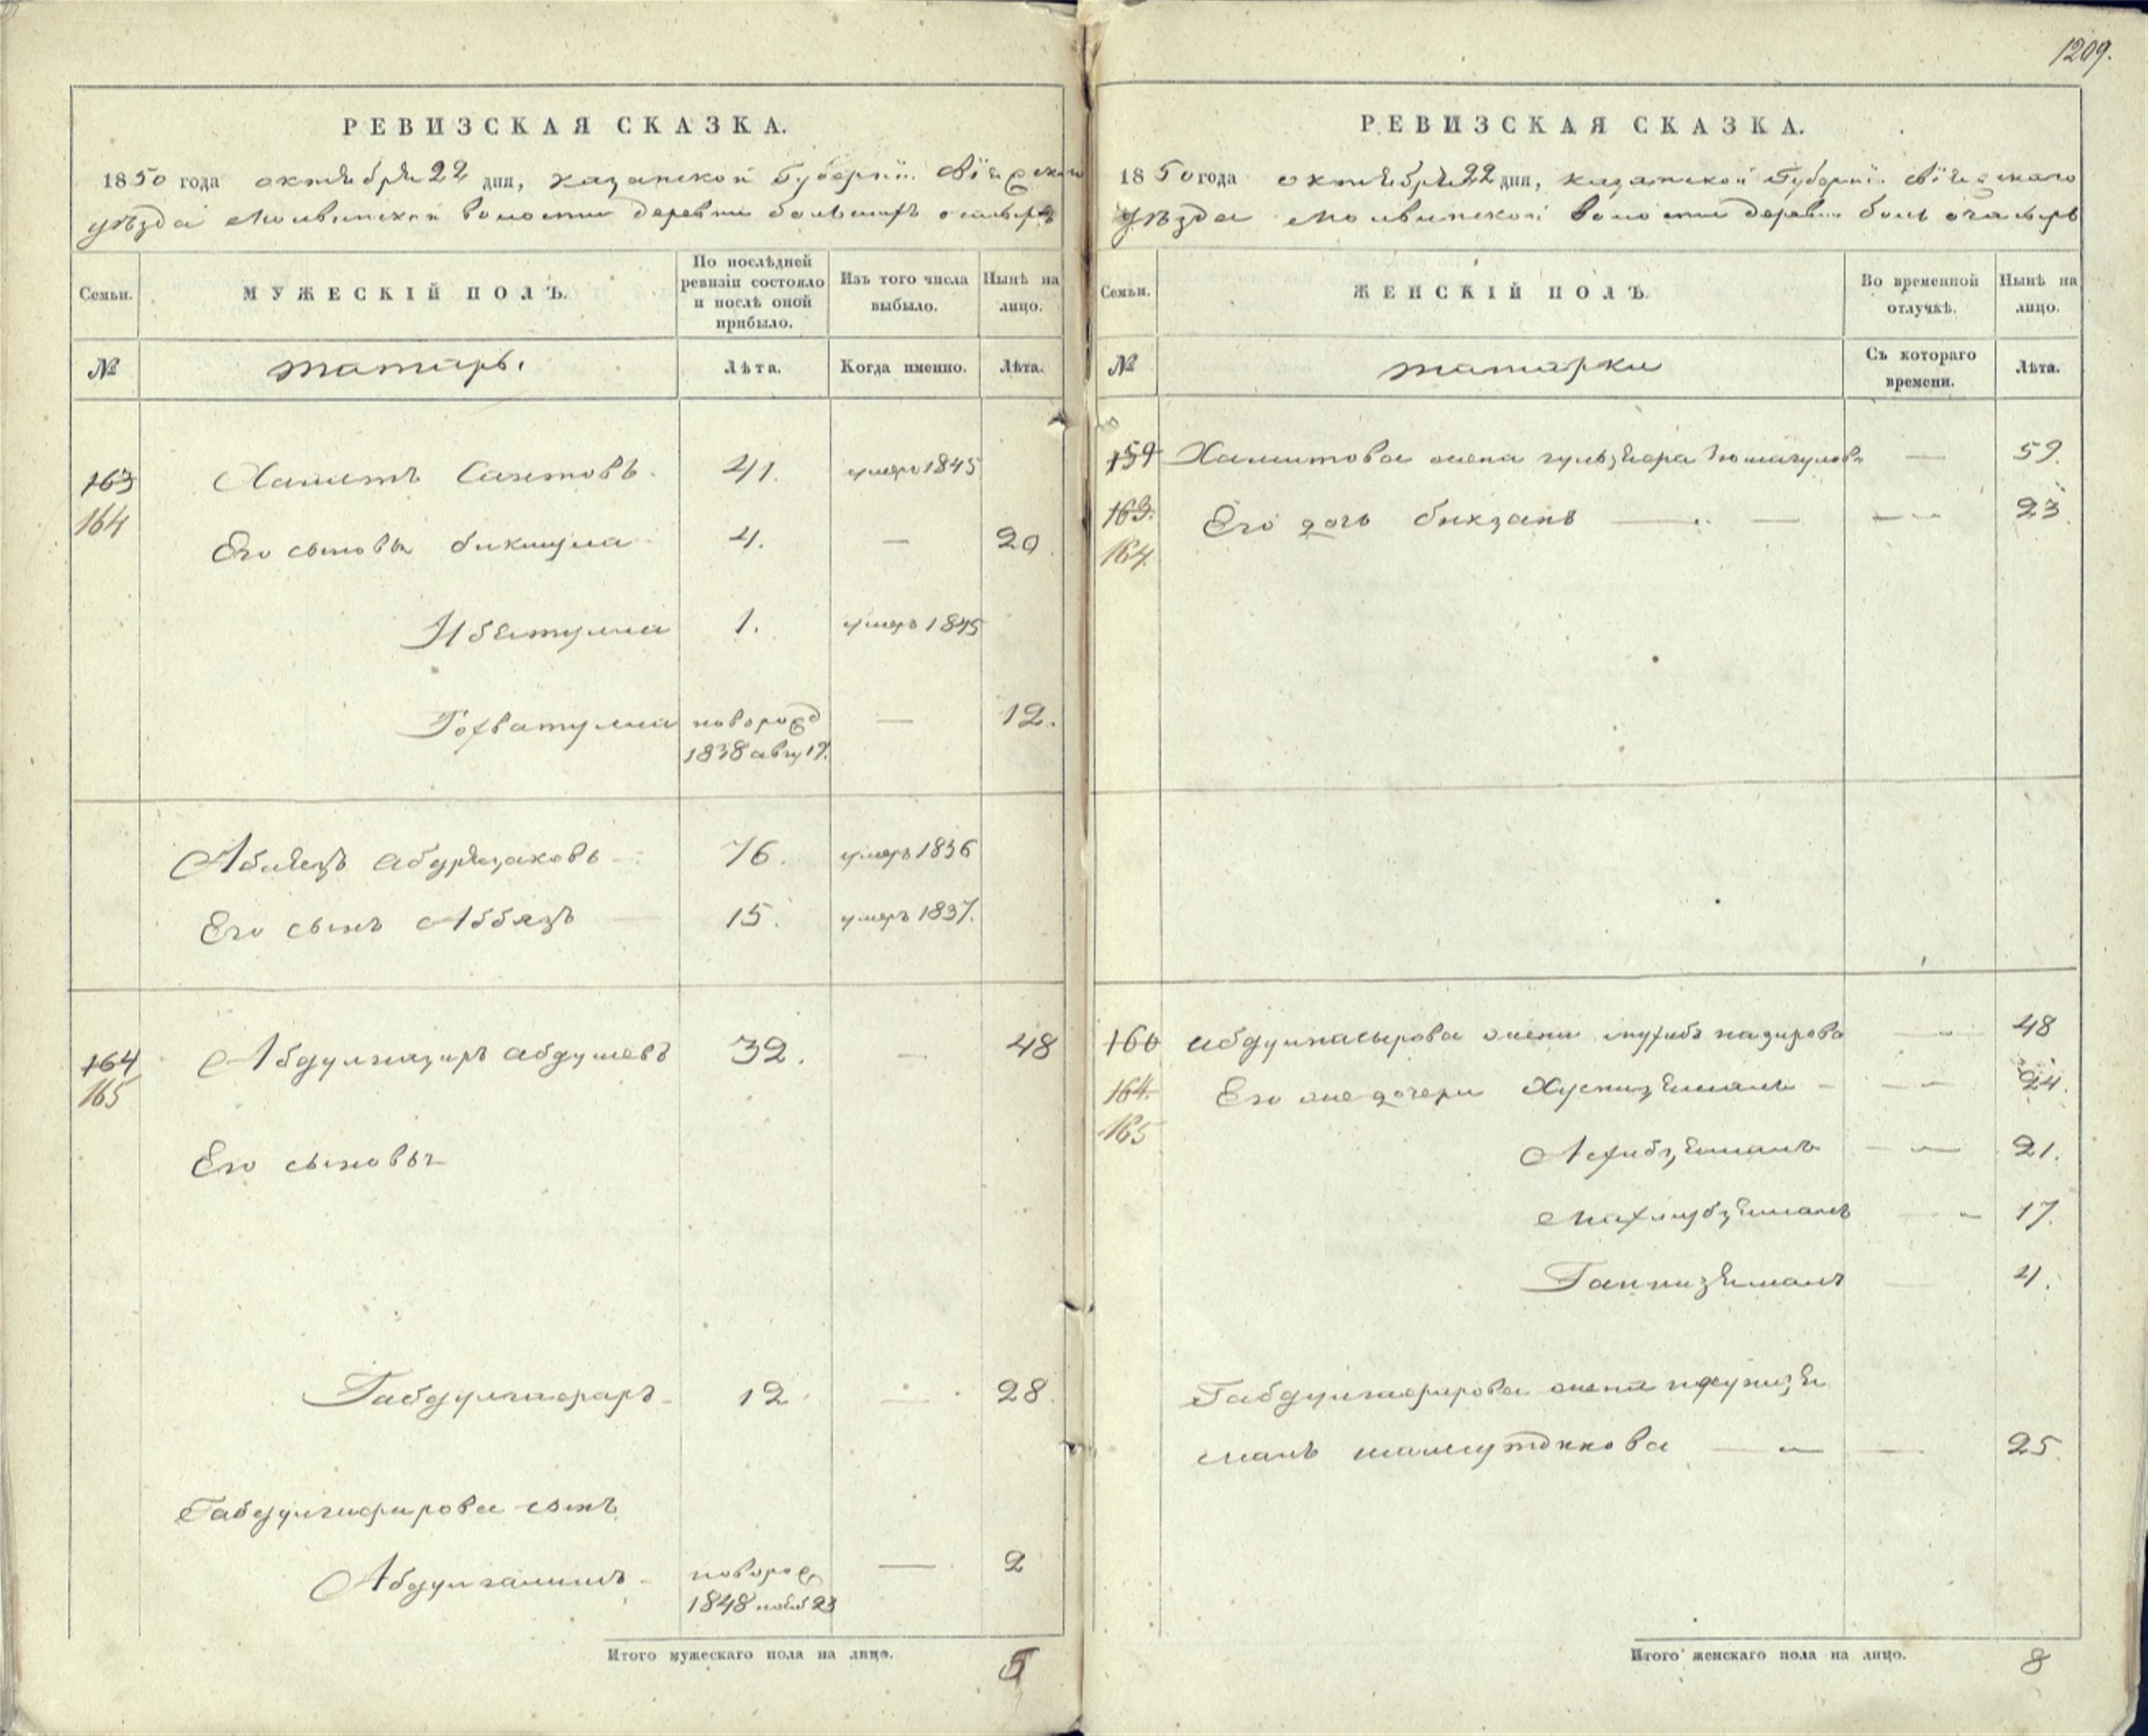 1209.
РЕВИЗСКАЯ СКАЗКА.
1850 года октября 22 дня, Казанской Губернии Свiяжскаго
уѣзда Молвинской волости деревни большихъ
Семьи.
МУЖЕСКІЙ ПОЛЪ.
По послѣдней ревизіи состояло и послѣ оной прибыло.
Изъ того числа выбыло.
Нынѣ на лицо.
№
татаръ.
Лѣта.
Когда именно.
Лѣта.
163 Хамитъ Саитовъ 41. умеръ 1845
164
Его сыновья бикмулла 4. — 20
Ибятулла 1. умеръ 1845
новорожд — 12.
1838 авгу 17.
76. умеръ 1836
Его сынъ 15. умеръ 1837.
164 абдулнасыръ 32. — 48
165
Его сыновья
Габдулгафаръ 12 — 28
Габдулгафарова сынъ
Абдулгалимъ новорож — 2
1848 нояб 23
Итого мужескаго пола на лицо. 5
РЕВИЗСКАЯ СКАЗКА.
1850 года октября 22 дня, Казанской Губернiи Свiяжскаго
уѣзда Молвинской волости деревни боль
Семьи.
ЖЕНСКІЙ ПОЛЪ.
Во временной отлучкѣ.
Нынѣ на лицо.
№
татарки
Съ котораго времени.
Лѣта.
159 Хамитова жена — 59.
163. Его дочь бикзана — 23.
164.
160 абдулнасырова жена назирова — 48
164. Его же дочери Хуснизямалъ — 24.
165
21.
Махлубзямалъ — 17.
4.
Габдулгафарова жена
малъ — 25
Итого женскаго пола на лицо. 8